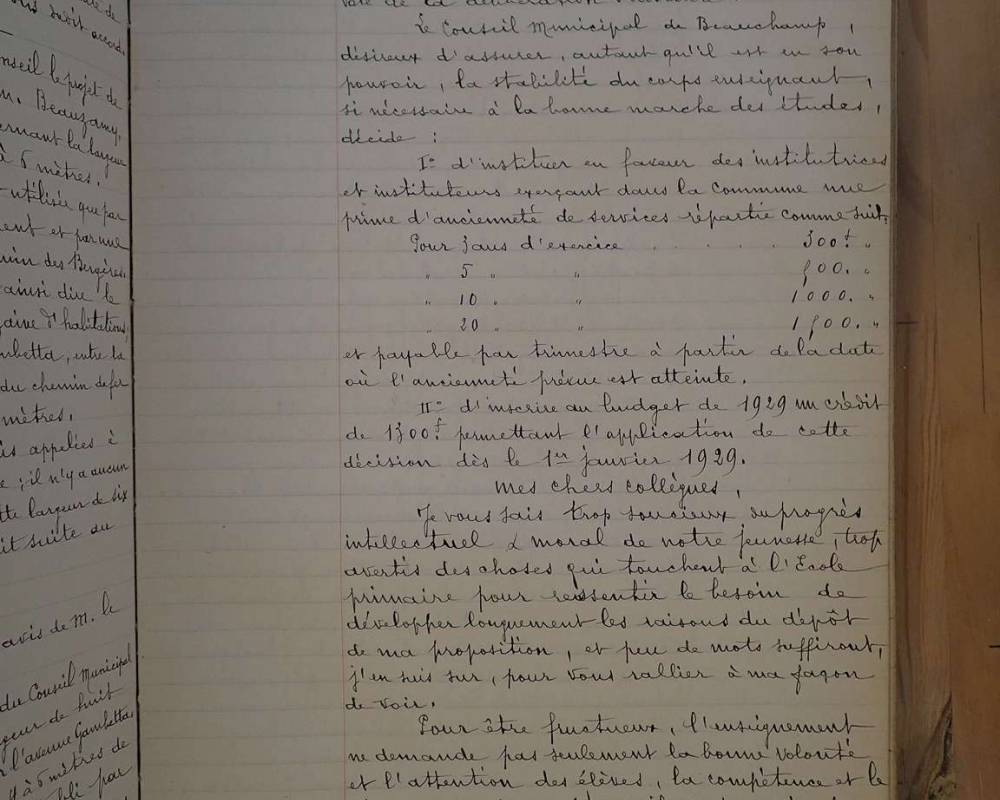 ous soit accord
nseil le projet de
m. Beauzamy,
ernant la largeur
à 6 mètres.
utilisée que par
ent et par une
min des Bergères,
ainsi dire le
zaine d'habitations,
mbetta, entre la
du chemin de fer
mètres.
is appelées à
e ; il n'y a aucun
tte largeur de six
it suite au
avis de M. le
du Conseil Municipal
geur de huit
l'avenue Gambetta,
à 6 mètres de
bli par
Le Conseil Municipal de Beauchamp,
désireux d'assurer, autant qu'il est en son
pouvoir, la stabilité du corps enseignant,
si nécessaire à la bonne marche des études,
décide :
I° d'instituer en faveur des institutrices
et instituteurs exerçant dans la commune une
prime d'ancienneté de services répartie comme suit.
Pour 3 ans d'exercice . . . . . 300f "
" 5 " " 500. "
" 10 " " 1000. "
" 20 " " 1500. "
et payable par trimestre à partir de la date
où l'ancienneté prévue est atteinte.
II° d'inscrire au budget de 1929 un crédit
de 1300f permettant l'application de cette
décision dès le 1er janvier 1929.
Mes chers collègues,
Je vous sais trop soucieux du progrès
intellectuel & moral de notre jeunesse, trop
avertis des choses qui touchent à l'Ecole
primaire pour ressentir le besoin de
développer longuement les raisons du dépôt
de ma proposition, et peu de mots suffiront,
j'en suis sur, pour vous rallier à ma façon
de voir.
Pour être fructueux, l'enseignement
ne demande pas seulement la bonne volonté
et l'attention des élèves, la compétence et le